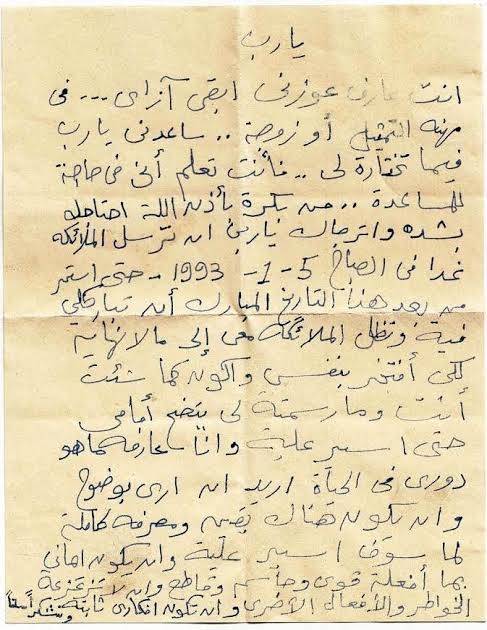 يارب
انت عارف عوزنى ابقى آزاى ... فى
مهنة التمثيل أو زوجة .. ساعدنى يارب
فيما تختارة لى .. فأنت تعلم أنى فى حاجة
للمساعدة .. من بكرة بأذن اللة احتاجله
بشده واترجاك ياربى ان ترسل الملائكه
غدا فى الصباح 5-1-1993 - حتى استمر
من بعد هذا التاريخ المبارك أن تباركلي
فية وتظل الملائكة معى إلى مالانهاية
لكى أفتخر بنفسى واكون كما شئت
أنت وما رسمتة لى يتضح أمامى
حتى اسير علية وانا عارفه ماهو
دورى فى الحياة اريد ان ارى بوضوح
وان يكون هناك يقين ومعرفه كاملة
لما سوف اسير علية وان يكون ايمانى
بما أفعلة قوى وحاسم وقاطع وان لا تزعزعة
الخواطر والأفعال الأخرى وان تكون افكارى ثابتة وشكراً